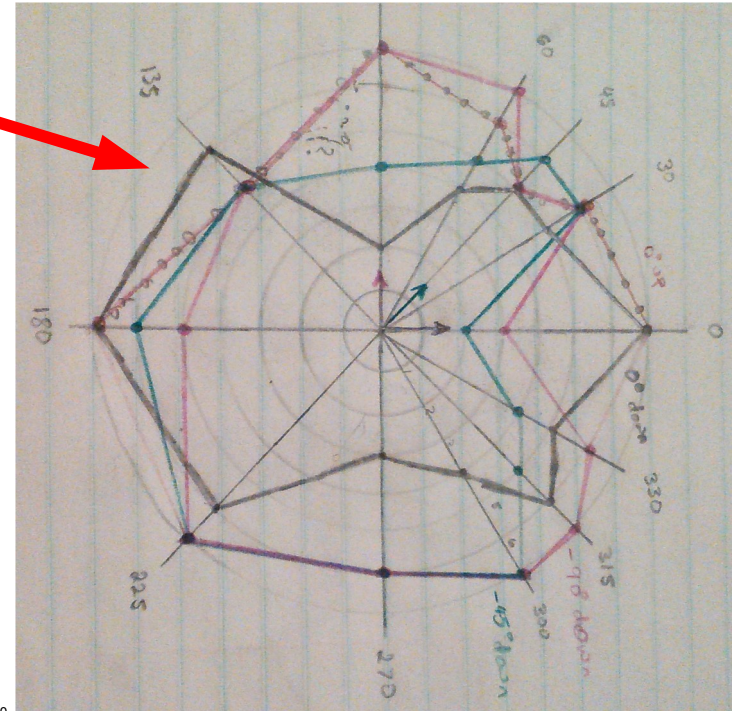 60
45
30
0° up
0
0° down
330
315
-90° down
300
-45° down
270
225
180
135
1
2
3
5
6